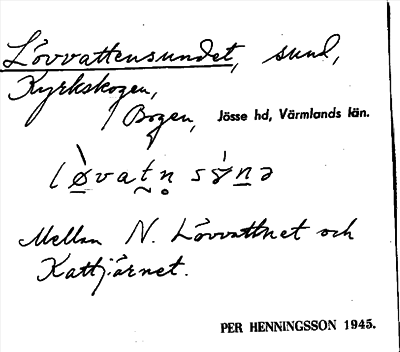 Lövvattensundet, sund,
Kyrkskogen,
Bogen, Jösse hd, Värmlands län.
Mellan N. Lövvattnet och
Kattjärnet.
PER HENNINGSSON 1945.